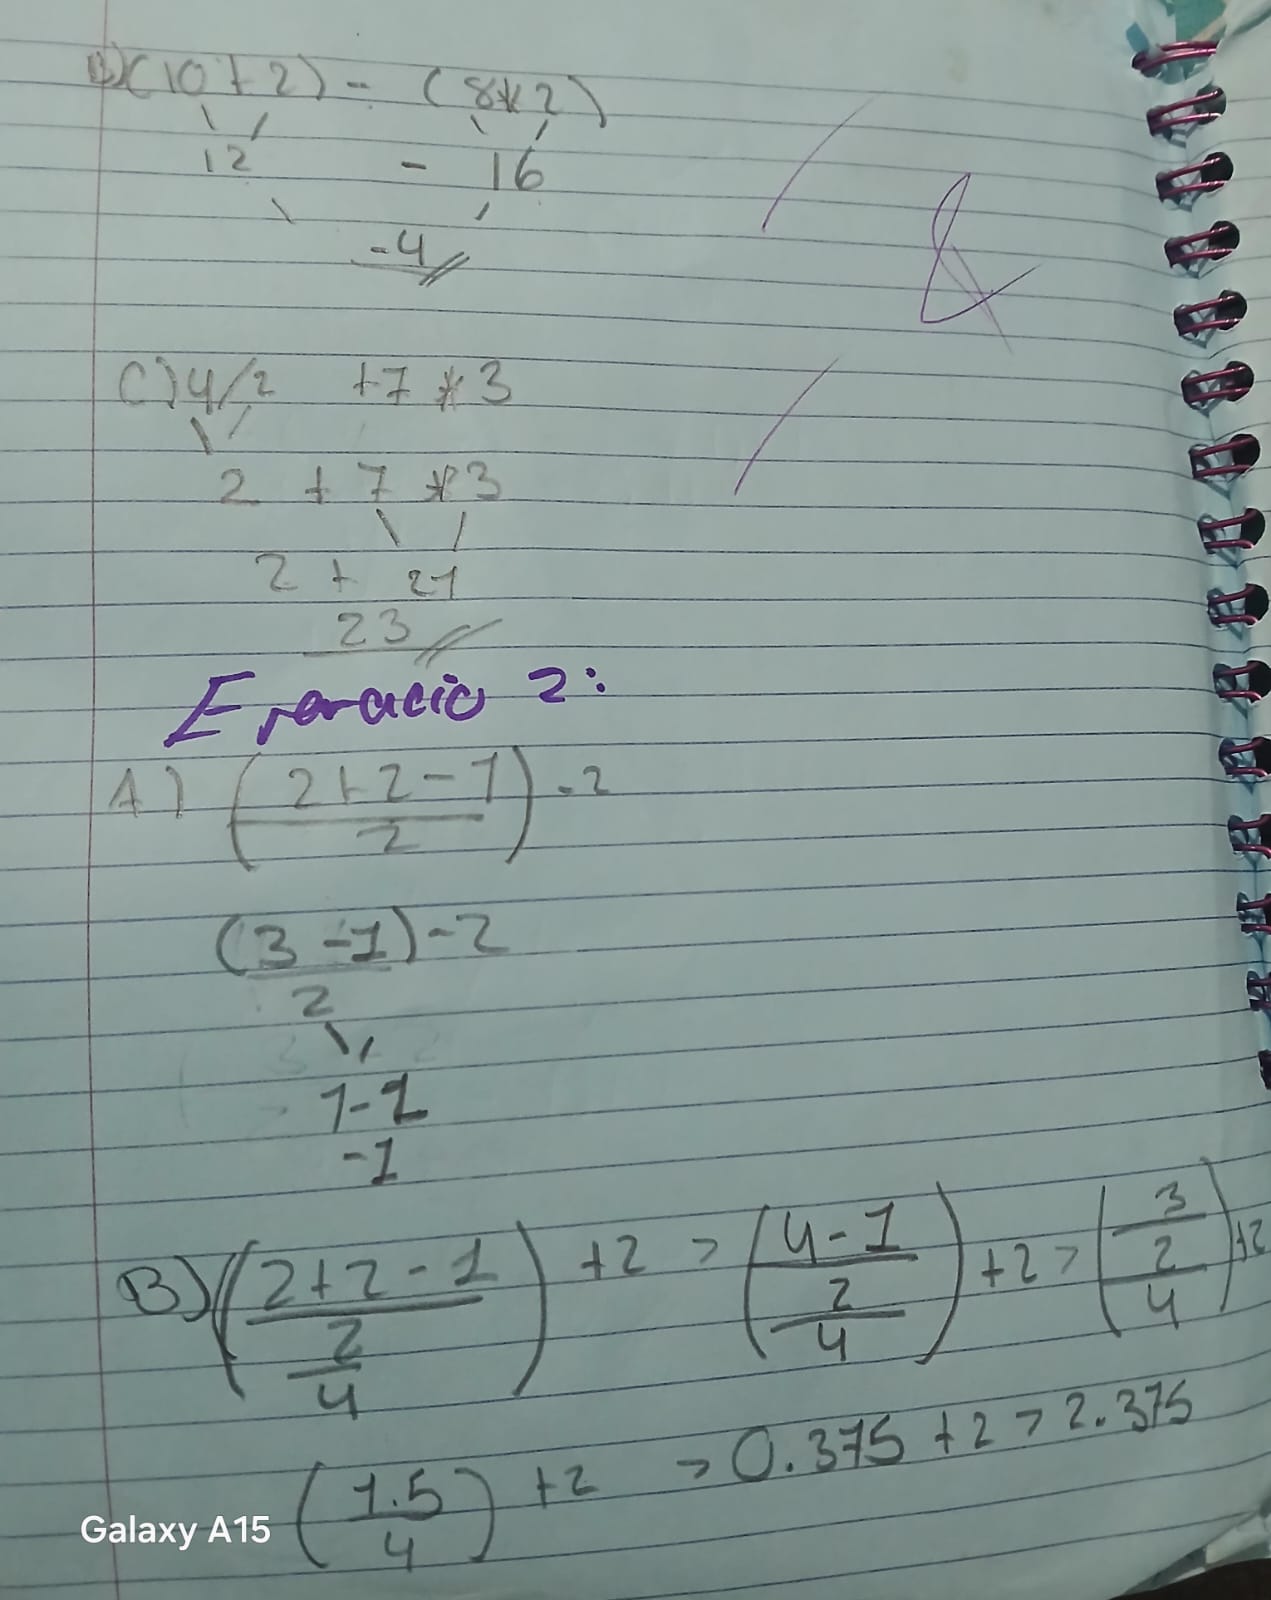 B) (10 + 2) - (8 * 2)
12 - 16
-4
C) 4/2 + 7 * 3
2 + 7 * 3
2 + 21
23
Ejercicio 2:
A) (2+2-1) - 2
2
(3 - 1) - 2
2
1-2
-1
B) (2+2-1 / 2 / 4) + 2 > (4-1 / 2 / 4) + 2 > (3 / 2 / 4) + 2
(1.5 / 4) + 2 > 0.375 + 2 > 2.375
Galaxy A15